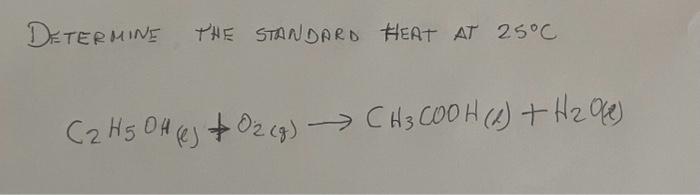 DETERMINE THE STANDARD HEAT AT 25°C
C2H5OH(l) + O2(g) → CH3COOH(l) + H2O(l)